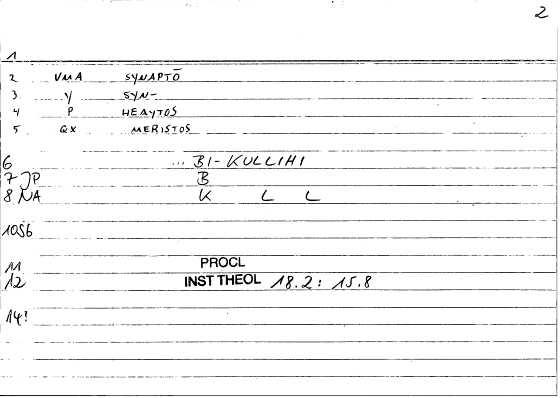 2
1
2 VMA SYNAPTŌ
3 Y SYN-
4 P HEAYTOS
5 QX MERISTOS
6 ... BI-KULLIHI
7 JP B
8 NA K L L
10SG
11 PROCL
12 INST THEOL 18.2: 15.8
14!